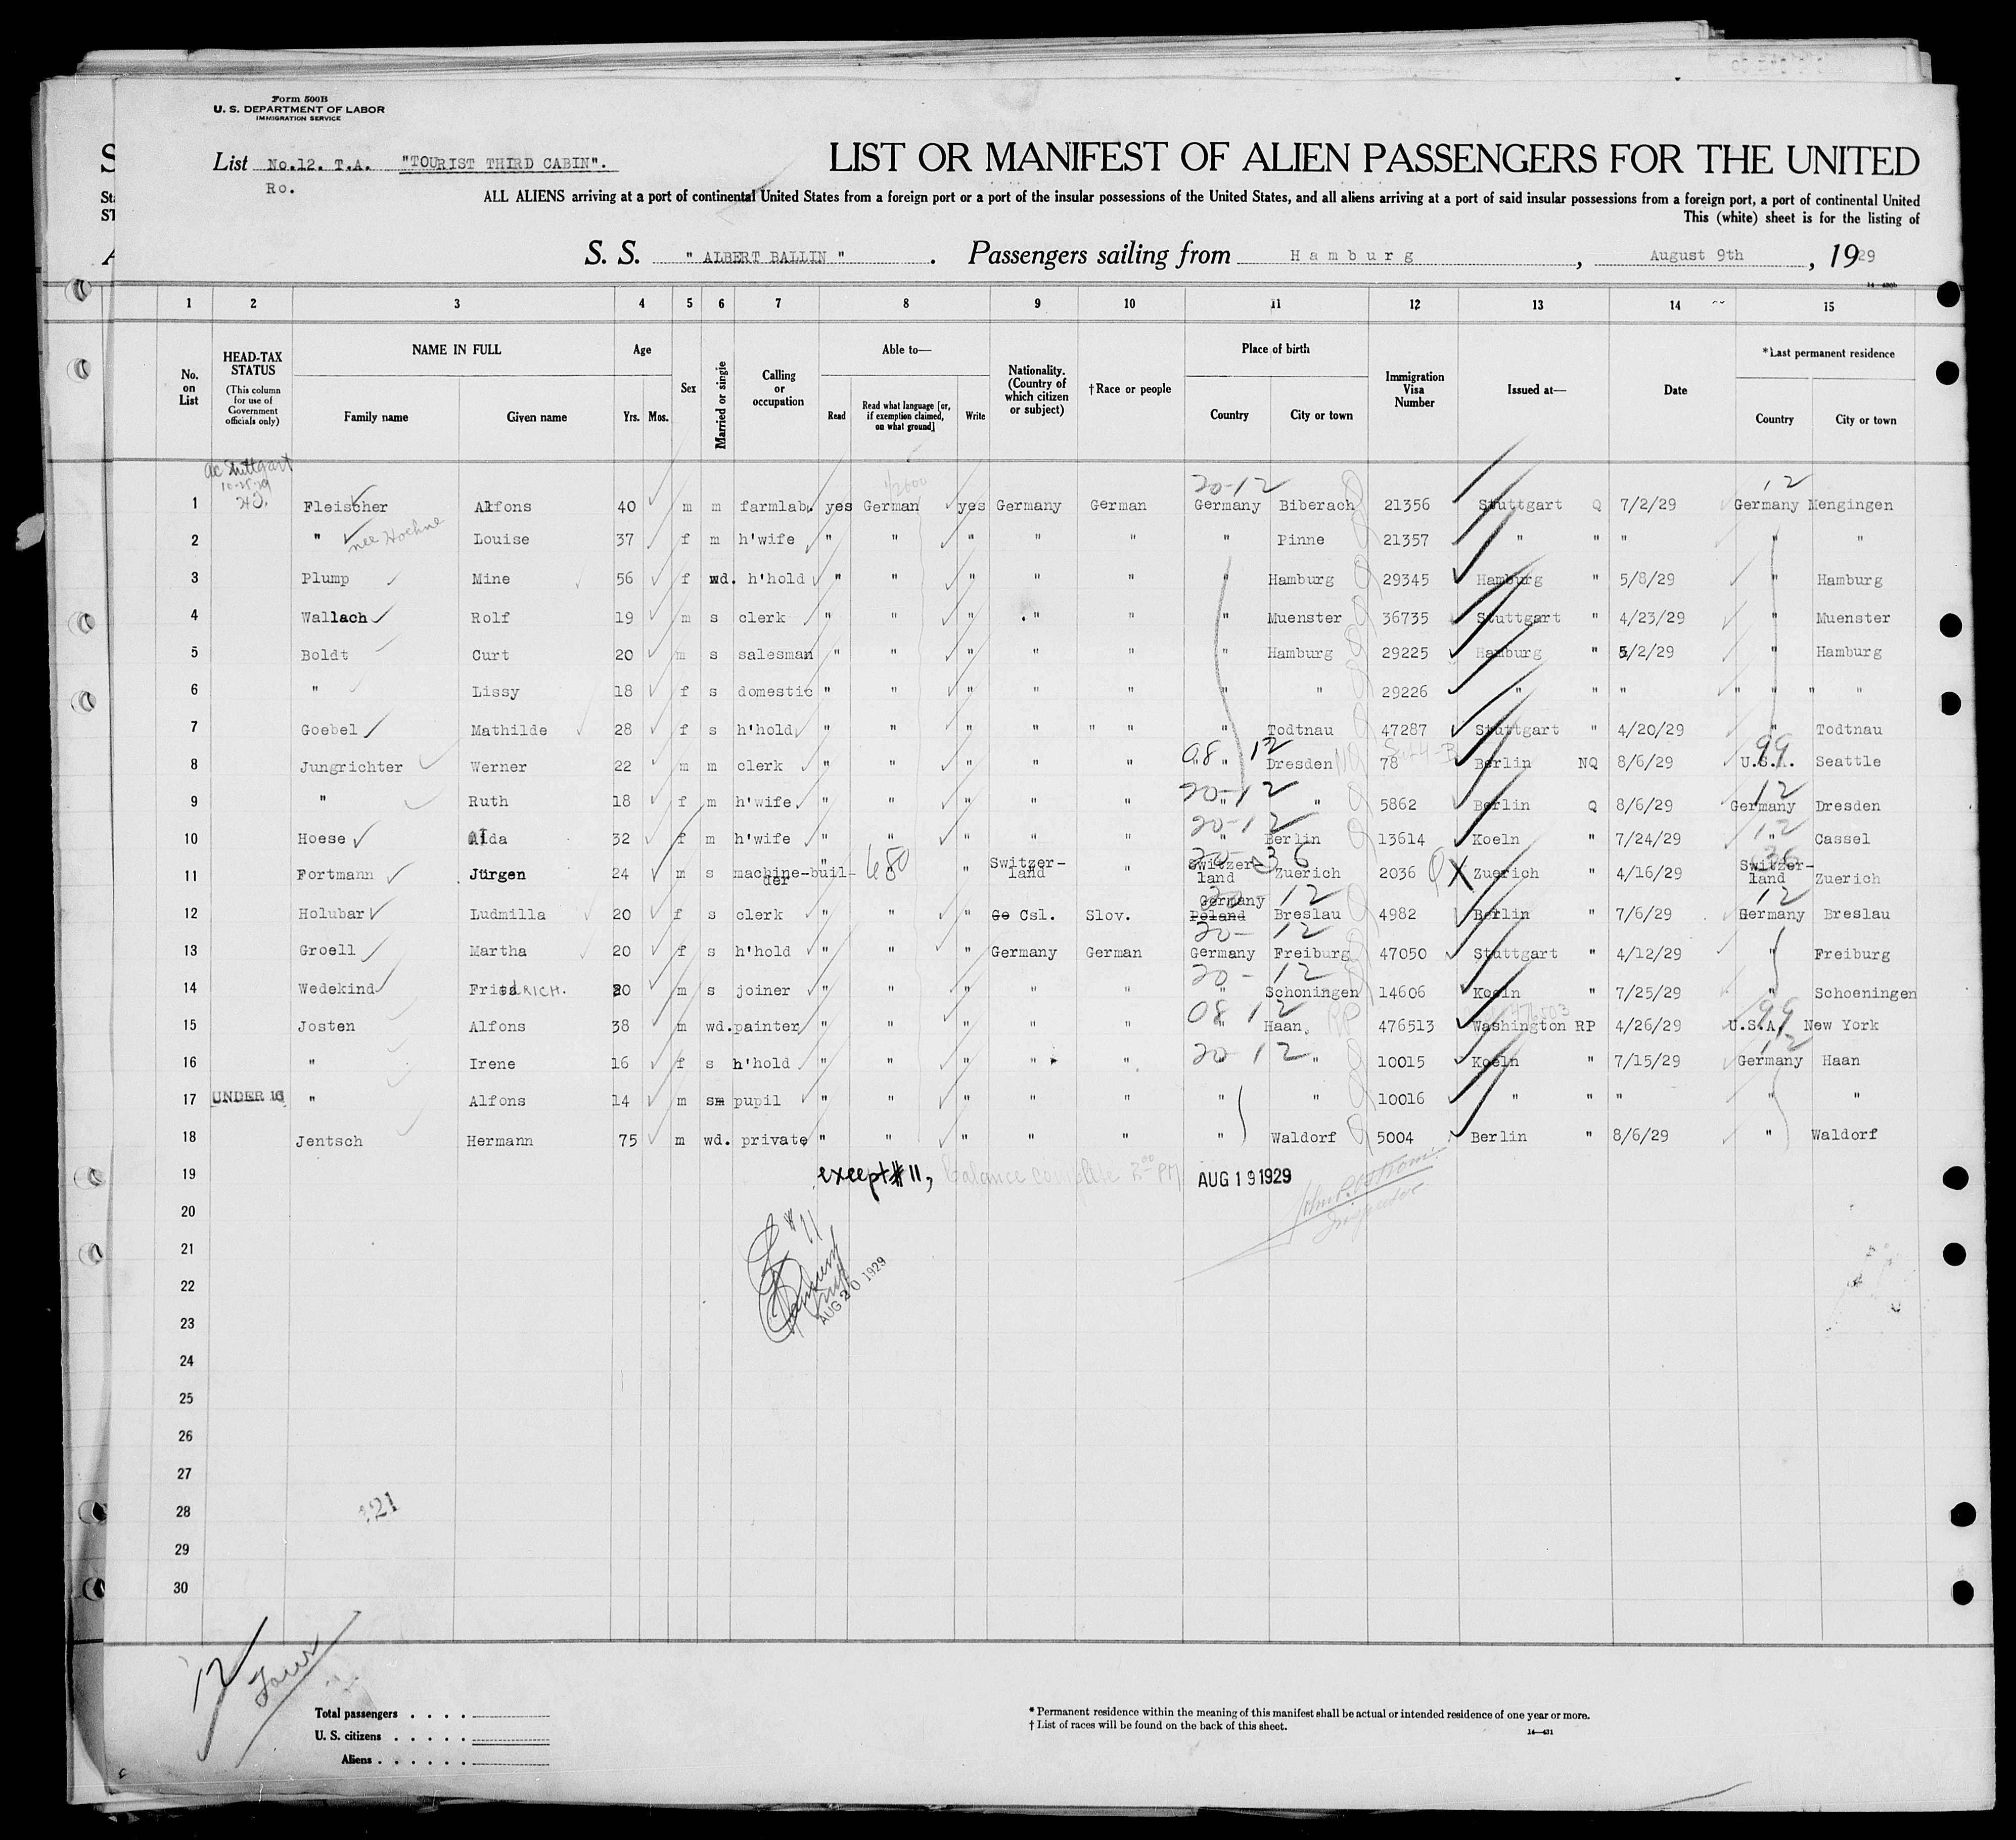 Form 500B
U. S. DEPARTMENT OF LABOR
IMMIGRATION SERVICE
List No.12. T.A. "TOURIST THIRD CABIN".
Ro.
LIST OR MANIFEST OF ALIEN PASSENGERS FOR THE UNITED
ALL ALIENS arriving at a port of continental United States from a foreign port or a port of the insular possessions of the United States, and all aliens arriving at a port of said insular possessions from a foreign port, a port of continental United
This (white) sheet is for the listing of
S. S. " ALBERT BALLIN " . Passengers sailing from Hamburg , August 9th , 1929
1 2 3 4 5 6 7 8 9 10 11 12 13 14 15
No. on List
HEAD-TAX STATUS (This column for use of Government officials only)
NAME IN FULL Family name Given name
Age Yrs. Mos.
Sex
Married or single
Calling or occupation
Able to— Read Read what language [or, if exemption claimed, on what ground] Write
Nationality. (Country of which citizen or subject)
† Race or people
Place of birth Country City or town
Immigration Visa Number
Issued at—
Date
*Last permanent residence Country City or town
ac Stuttgart
20-12 12
1 Fleischer Alfons 40 m m farmlab. yes German yes Germany German Germany Biberach 21356 Stuttgart Q 7/2/29 Germany Mengingen
nee Hoehne
2 " Louise 37 f m h'wife " " " " " " Pinne 21357 " " " " "
3 Plump Mine 56 f wd. h'hold " " " " " " Hamburg 29345 Hamburg " 5/8/29 " Hamburg
4 Wallach Rolf 19 m s clerk " " " " " " Muenster 36735 Stuttgart " 4/23/29 " Muenster
5 Boldt Curt 20 m s salesman " " " " " " Hamburg 29225 Hamburg " 5/2/29 " Hamburg
6 " Lissy 18 f s domestic " " " " " " " 29226 " " " " " " "
7 Goebel Mathilde 28 f s h'hold " " " " " " " Todtnau 47287 Stuttgart " 4/20/29 " Todtnau
08 12 99
8 Jungrichter Werner 22 m m clerk " " " " " " Dresden 78 Berlin NQ 8/6/29 U.S.A. Seattle
20-12 12
9 " Ruth 18 f m h'wife " " " " " " " 5862 Berlin Q 8/6/29 Germany Dresden
20-12 12
10 Hoese Aida 32 f m h'wife " " " " " " Berlin 13614 Koeln " 7/24/29 " Cassel
20-36 36
11 Fortmann Jürgen 24 m s machine-builder " 680 " Switzerland " Switzerland Zuerich 2036 Q X Zuerich " 4/16/29 Switzerland Zuerich
20- 12 12
12 Holubar Ludmilla 20 f s clerk " " " Ge Csl. Slov. Poland Germany Breslau 4982 Berlin " 7/6/29 Germany Breslau
20- 12
13 Groell Martha 20 f s h'hold " " " Germany German Germany Freiburg 47050 Stuttgart " 4/12/29 " Freiburg
20- 12
14 Wedekind FriedRICH. 20 m s joiner " " " " " " Schoningen 14606 Koeln " 7/25/29 " Schoeningen
08 12 99
15 Josten Alfons 38 m wd. painter " " " " " " Haan. RP 476513 Washington RP 4/26/29 U.S.A. New York
20 12 12
16 " Irene 16 f s h'hold " " " " " " 10015 Koeln " 7/15/29 Germany Haan
17 UNDER 16 " Alfons 14 m sm pupil " " " " " " " 10016 " " " " "
18 Jentsch Hermann 75 m wd. private " " " " " " Waldorf 5004 Berlin " 8/6/29 " Waldorf
19 except #11, balance complete PM AUG 19 1929
Inspector
20
#11
21
22 AUG 20 1929
23
24
25
26
27
28
29
30
321
12
Total passengers . . . .
U. S. citizens . . . . .
Aliens . . . . . .
* Permanent residence within the meaning of this manifest shall be actual or intended residence of one year or more.
† List of races will be found on the back of this sheet.
14—431